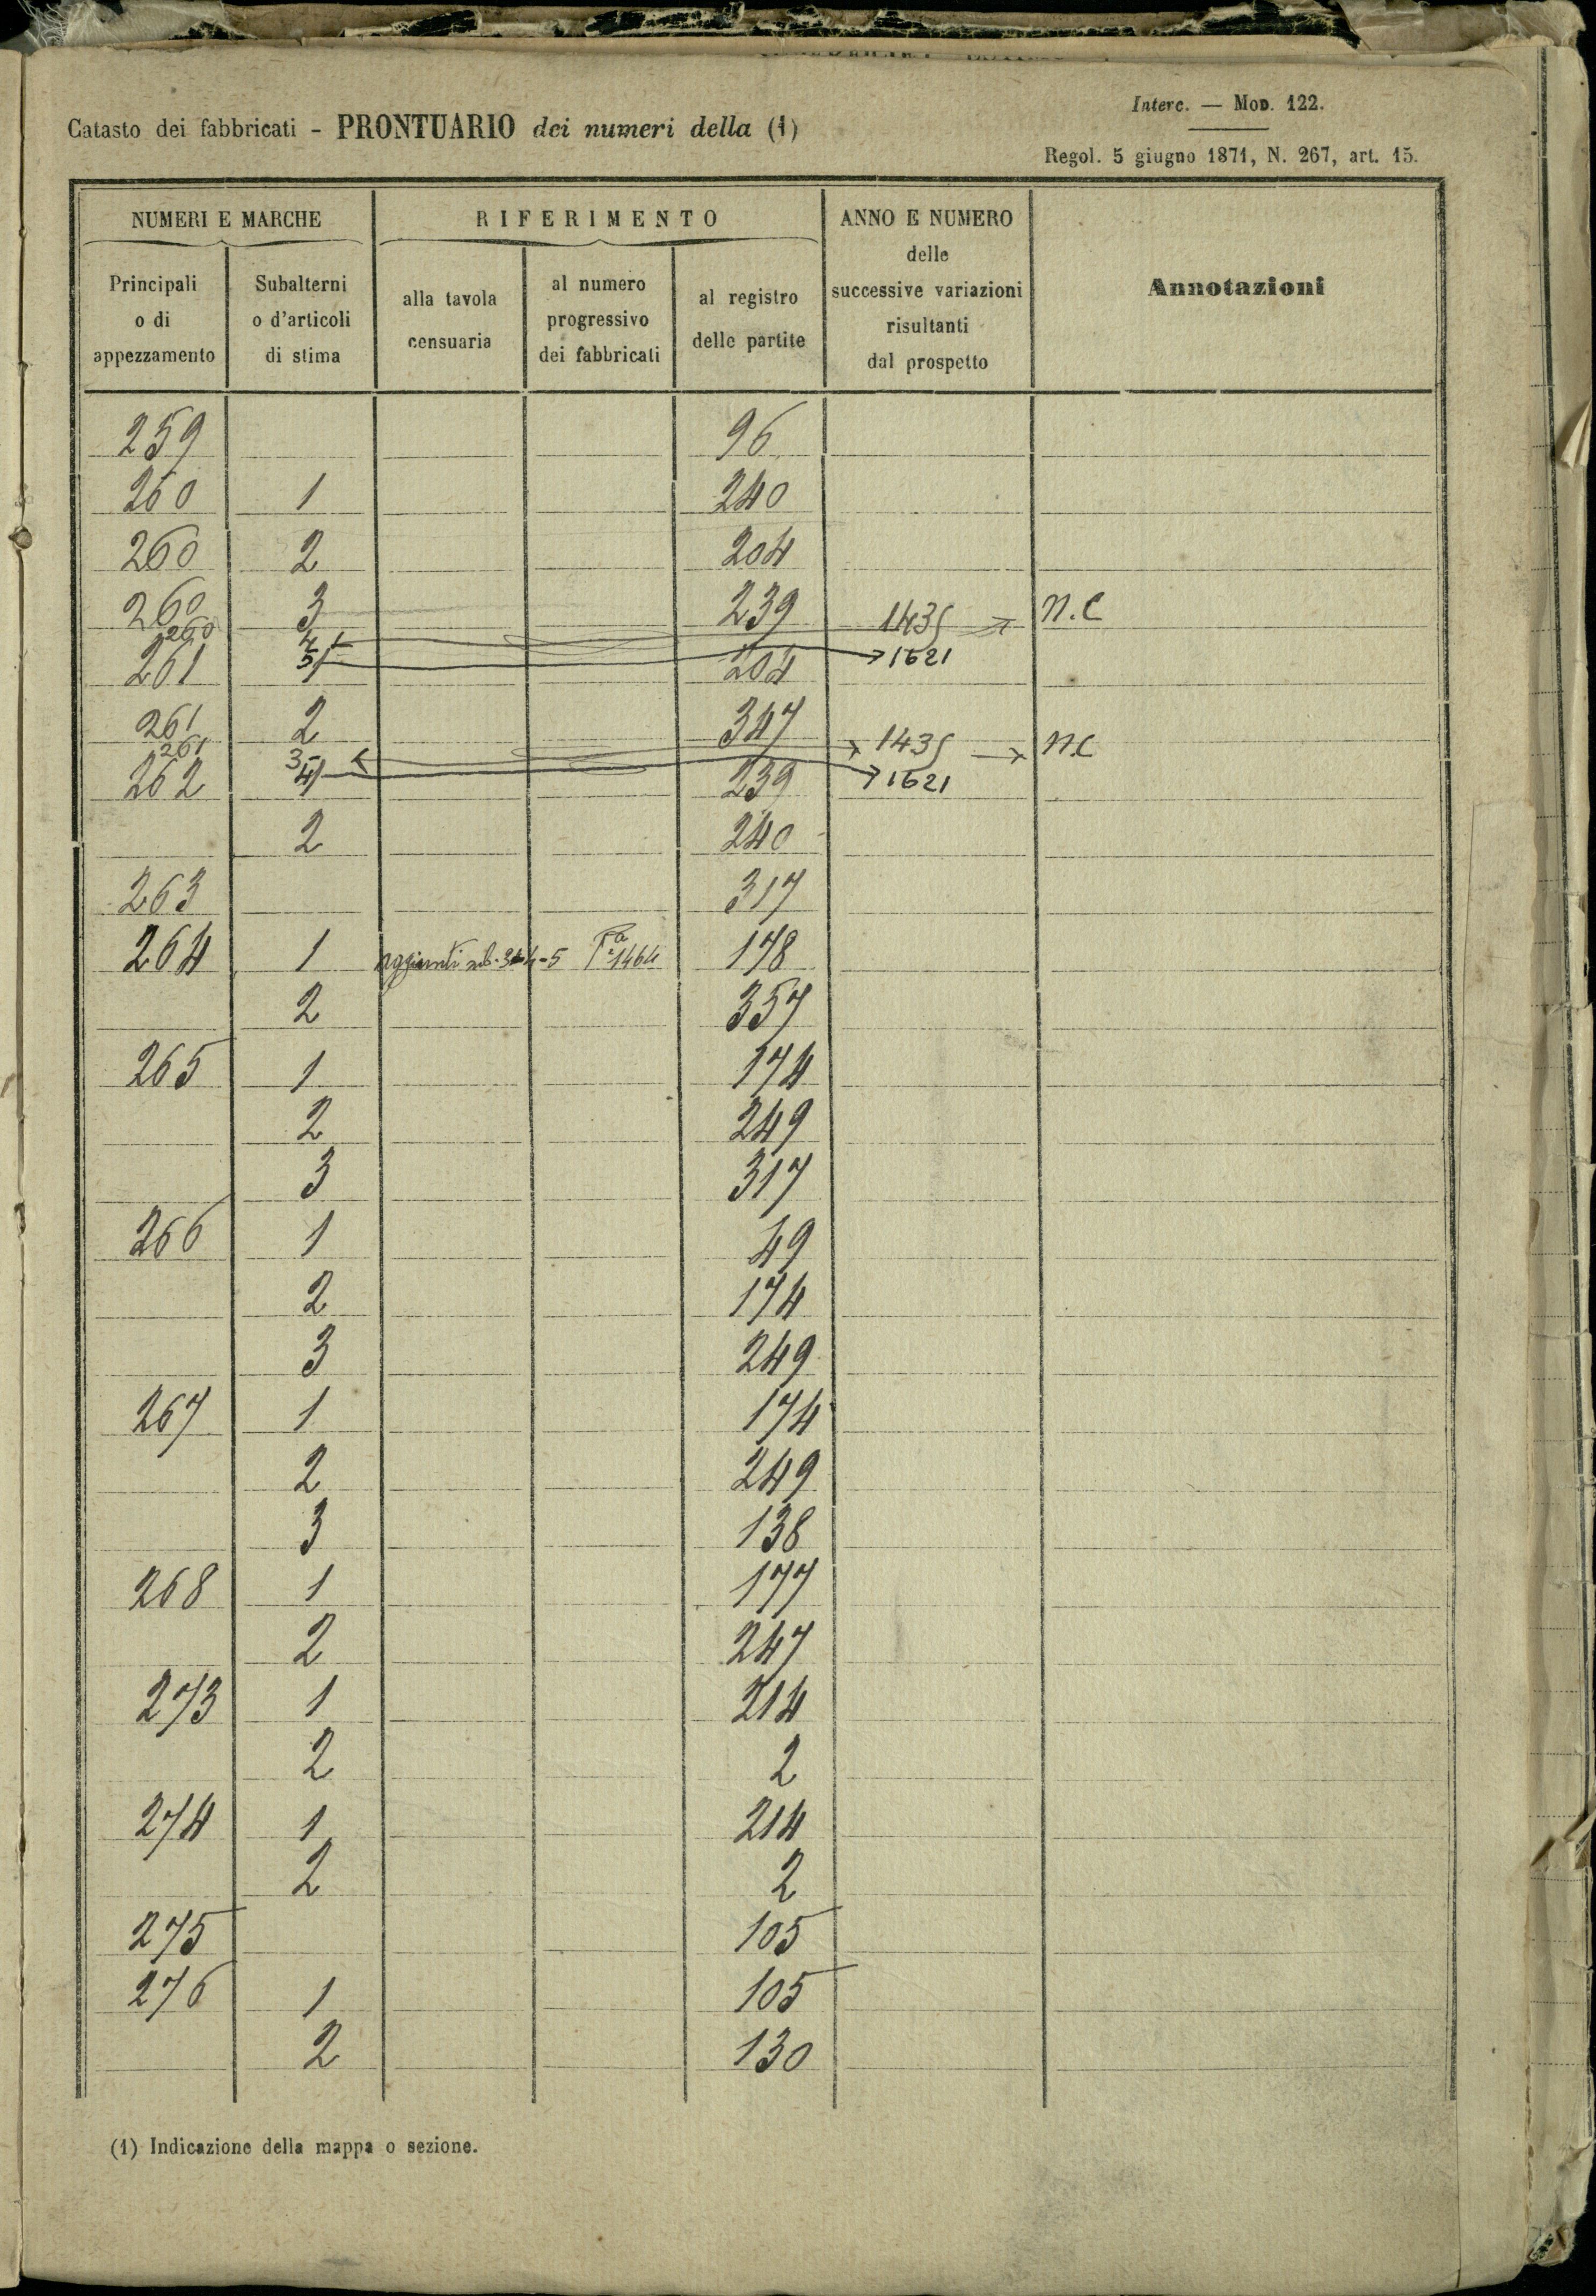 Interc. — Mod. 122.
Catasto dei fabbricati - PRONTUARIO dei numeri della (1)
Regol. 5 giugno 1871, N. 267, art. 15.
NUMERI E MARCHE
RIFERIMENTO
ANNO E NUMERO
delle
successive variazioni
risultanti
dal prospetto
Annotazioni
Principali
o di
appezzamento
Subalterni
o d'articoli
di stima
alla tavola
censuaria
al numero
progressivo
dei fabbricati
al registro
delle partite
259 96
260 1 240
260 2 204
260 3 239 1435 n.C
260 4
5 1621
261 1 204
261 2 347
261 3 1435 n.C
4 1621
262 1 239
2 240
263 317
264 1 aggiunti sub. 3-4-5 Pa 1464 178
2 357
265 1 174
2 249
3 317
266 1 49
2 174
3 249
267 1 174
2 249
3 138
268 1 177
2 247
273 1 214
2 2
274 1 214
2 2
275 105
276 1 105
2 130
(1) Indicazione della mappa o sezione.